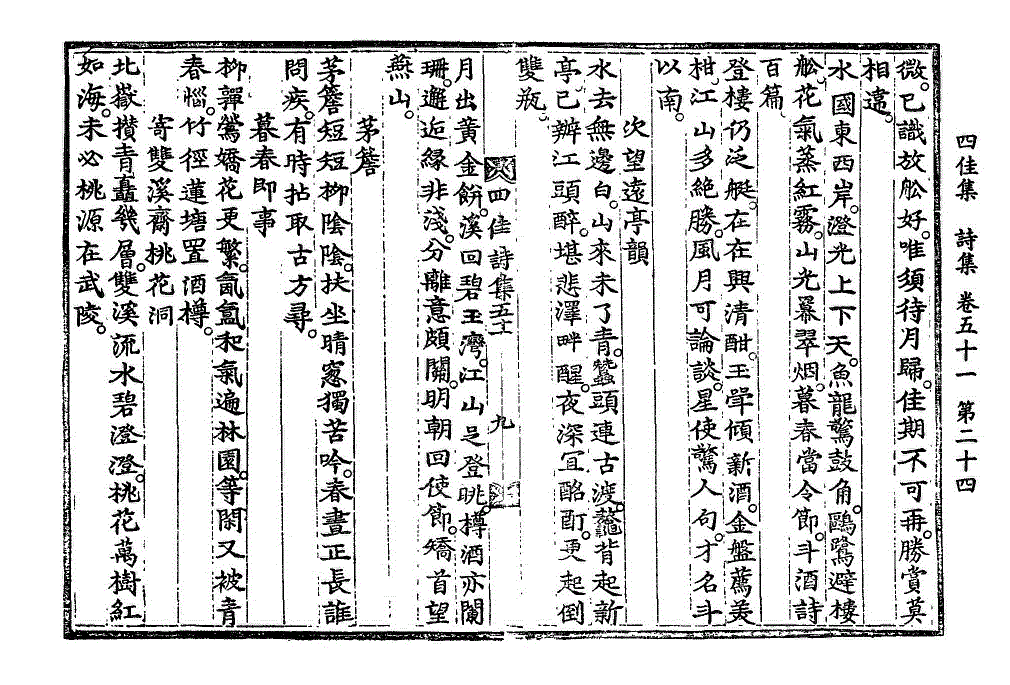 四佳集　詩集　卷五十一　第二十四
微。已識放舩好。唯須待月歸。佳期不可再。勝賞莫
相違。
水國東西岸。澄光上下天。魚龍驚鼓角。鷗鷺避樓
舩。花氣蒸紅霧。山光羃翠烟。暮春當令節。斗酒詩
百篇。
登樓仍泛艇。在在興清酣。玉斝傾新酒。金盤薦美
柑。江山多絶勝。風月可論談。星使驚人句。才名斗
以南。
次望遠亭韻
水去無邊白。山來未了靑。蠶頭連古渡。鼇背起新
亭。已辦江頭醉。堪悲澤畔醒。夜深冝酩酊。更起倒
雙瓶。
四佳詩集五十一　九
月出黃金餠。溪回碧玉灣。江山足登眺。樽酒亦闌
珊。邂逅緣非淺。分離意頗關。明朝回使節。矯首望
燕山。
茅簷
茅簷短短柳陰陰。扶坐晴窓獨苦吟。春晝正長誰
問疾。有時拈取古方尋。
暮春即事
柳嚲鶯嬌花更繁。氤氳和氣遍林園。等閑又被靑
春惱。竹徑蓮塘置酒樽。
寄雙溪齋桃花洞
北嶽攢靑矗幾層。雙溪流水碧澄澄。桃花萬樹紅
如海。未必桃源在武陵。